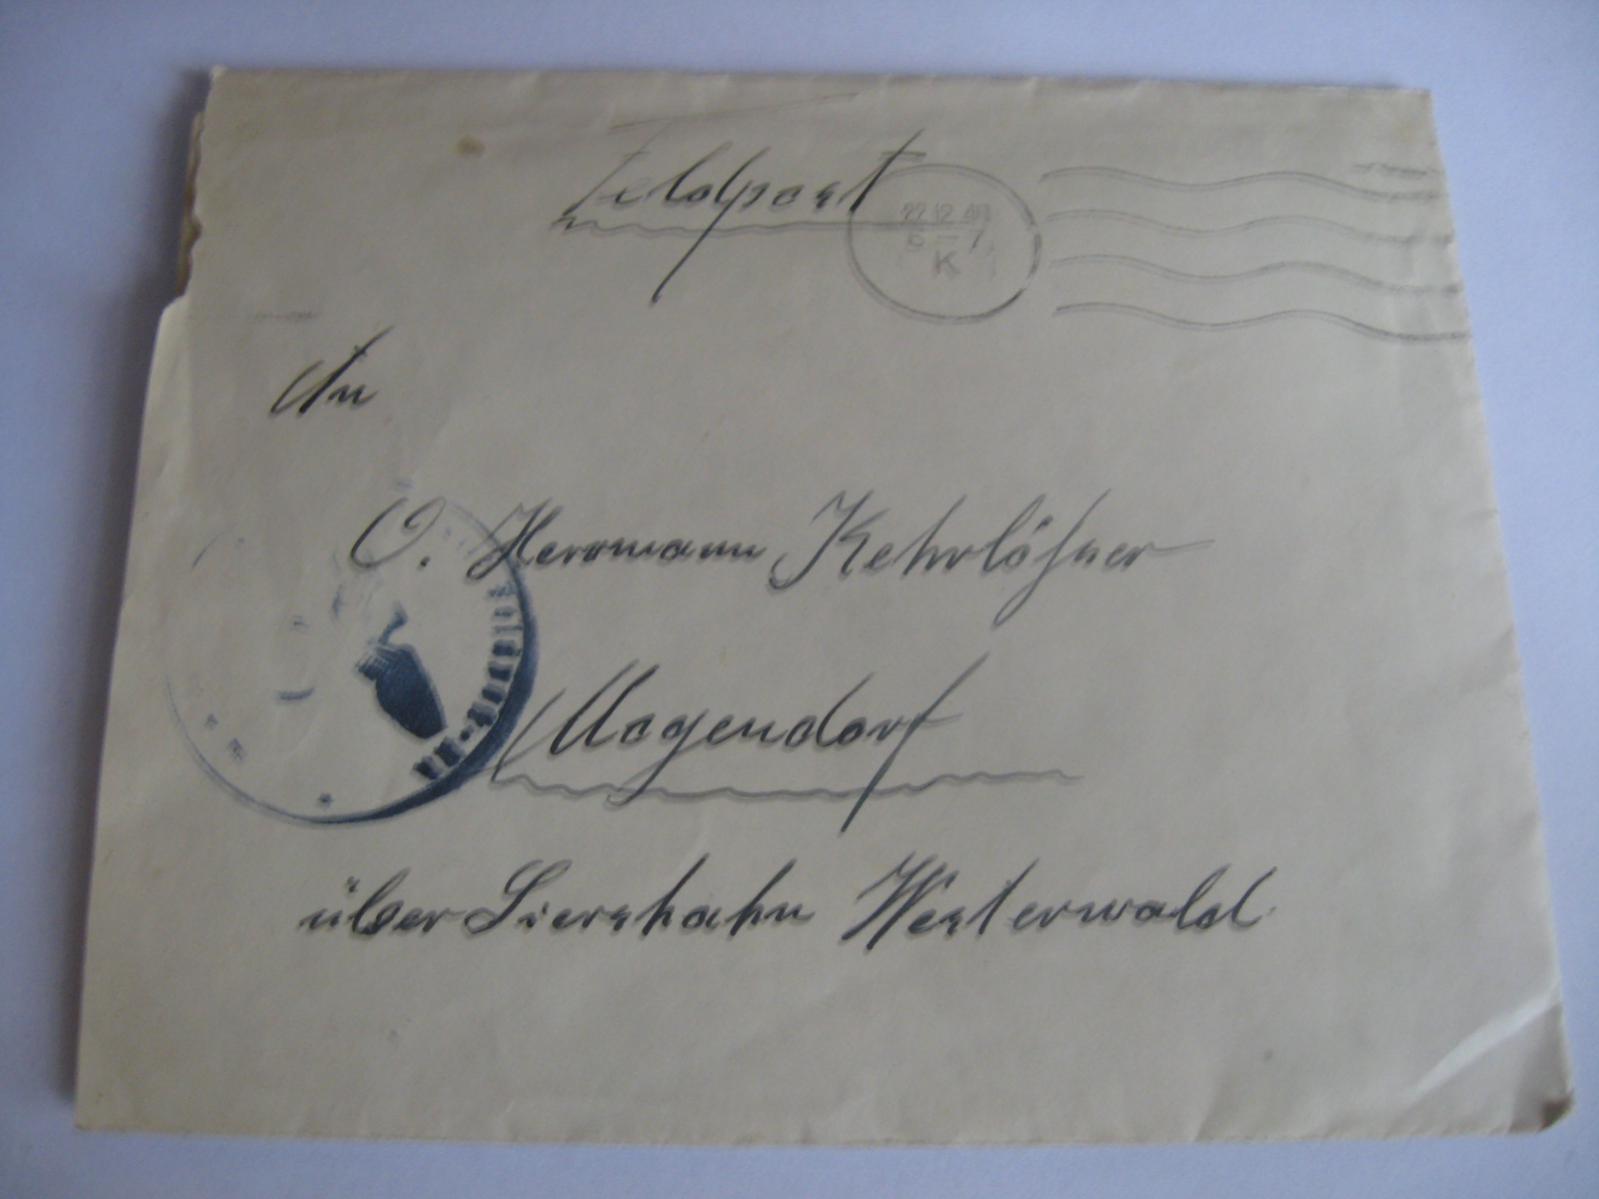 Feldpost
22.12.40
K
An
O. Herrmann Kehrlösser
Mogendorf
über Siershahn Westerwald